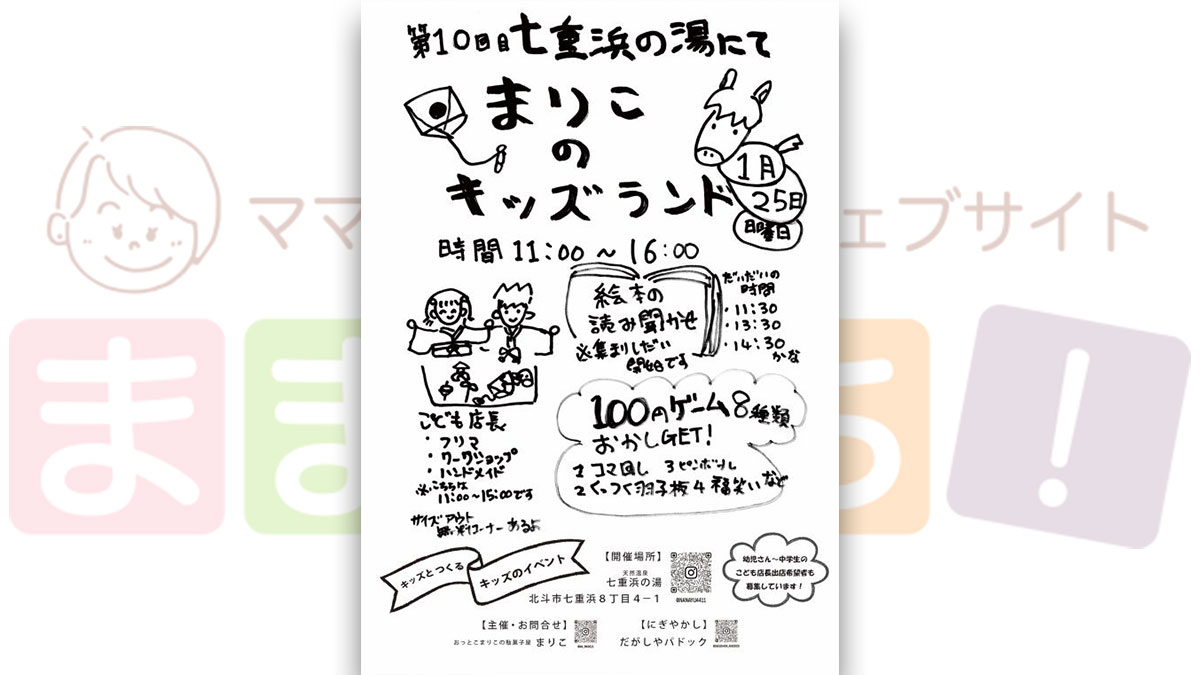 第10回目七重浜の湯にて
まりこ
の
キッズランド
1月
25日
日曜日
時間 11:00～16:00
絵本の
読み聞かせ
※集まりしだい
開始です
だいだいの
時間
・11:30
・13:30
・14:30
かな
こども店長
・フリマ
・ワークショップ
・ハンドメイド
※こちらは
11:00～15:00です
サイズアウト
無料コーナーあるよ
100円ゲーム8種類
おかしGET!
1 コマ回し 3 ピンボール
2 くっつく羽子板 4 福笑い など
キッズとつくる
キッズのイベント
【開催場所】
天然温泉
七重浜の湯
北斗市七重浜8丁目4−1
@NANAYU4411
幼児さん～中学生の
こども店長出店希望者も
募集しています！
【主催・お問合せ】
おっとこまりこの駄菓子屋 まりこ
【にぎやかし】
だがしやパドック
ママ
ェブサイト
ま
ま
ち
!